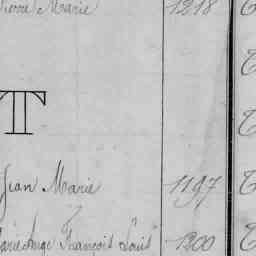 Pierre Marie 1218
T
Jean Marie 1197
Marie Ange François Louis 1200